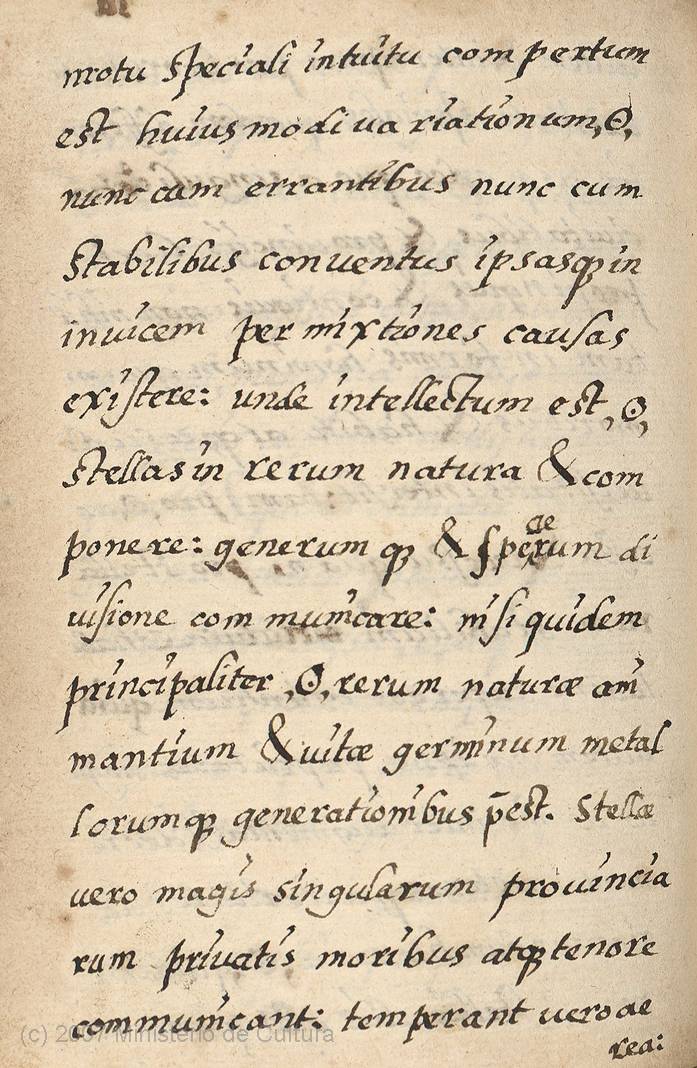 motu speciali intuitu compertum
est huiusmodi uariationum, ☉,
nunc cum errantibus nunc cum
stabilibus conuentus ipsasqꝫ in
inuicem permixtiones causas
existere: unde intellectum est, ☉,
stellas in rerum natura & com
ponere: generum qꝫ & sperum di
ae
uisione communicare: nisi quidem
principaliter, ☉, rerum naturæ ani
mantium & uitæ germinum metal
lorumqꝫ generationibus p̄est. Stellæ
uero magis singularum prouincia
rum priuatis moribus atqꝫ tenore
communicant: temperant uero ae
rea:
(c) 2007 Ministerio de Cultura